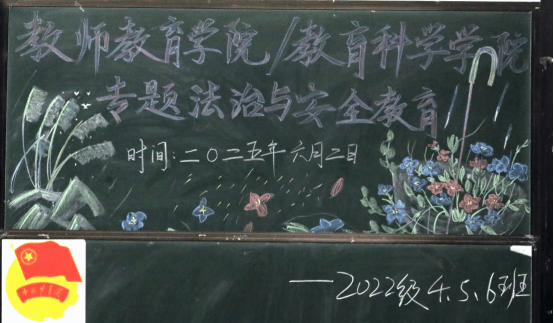 教师教育学院/教育科学学院
专题法治与安全教育
时间:二〇二五年六月二日
—2022级4.5.6班